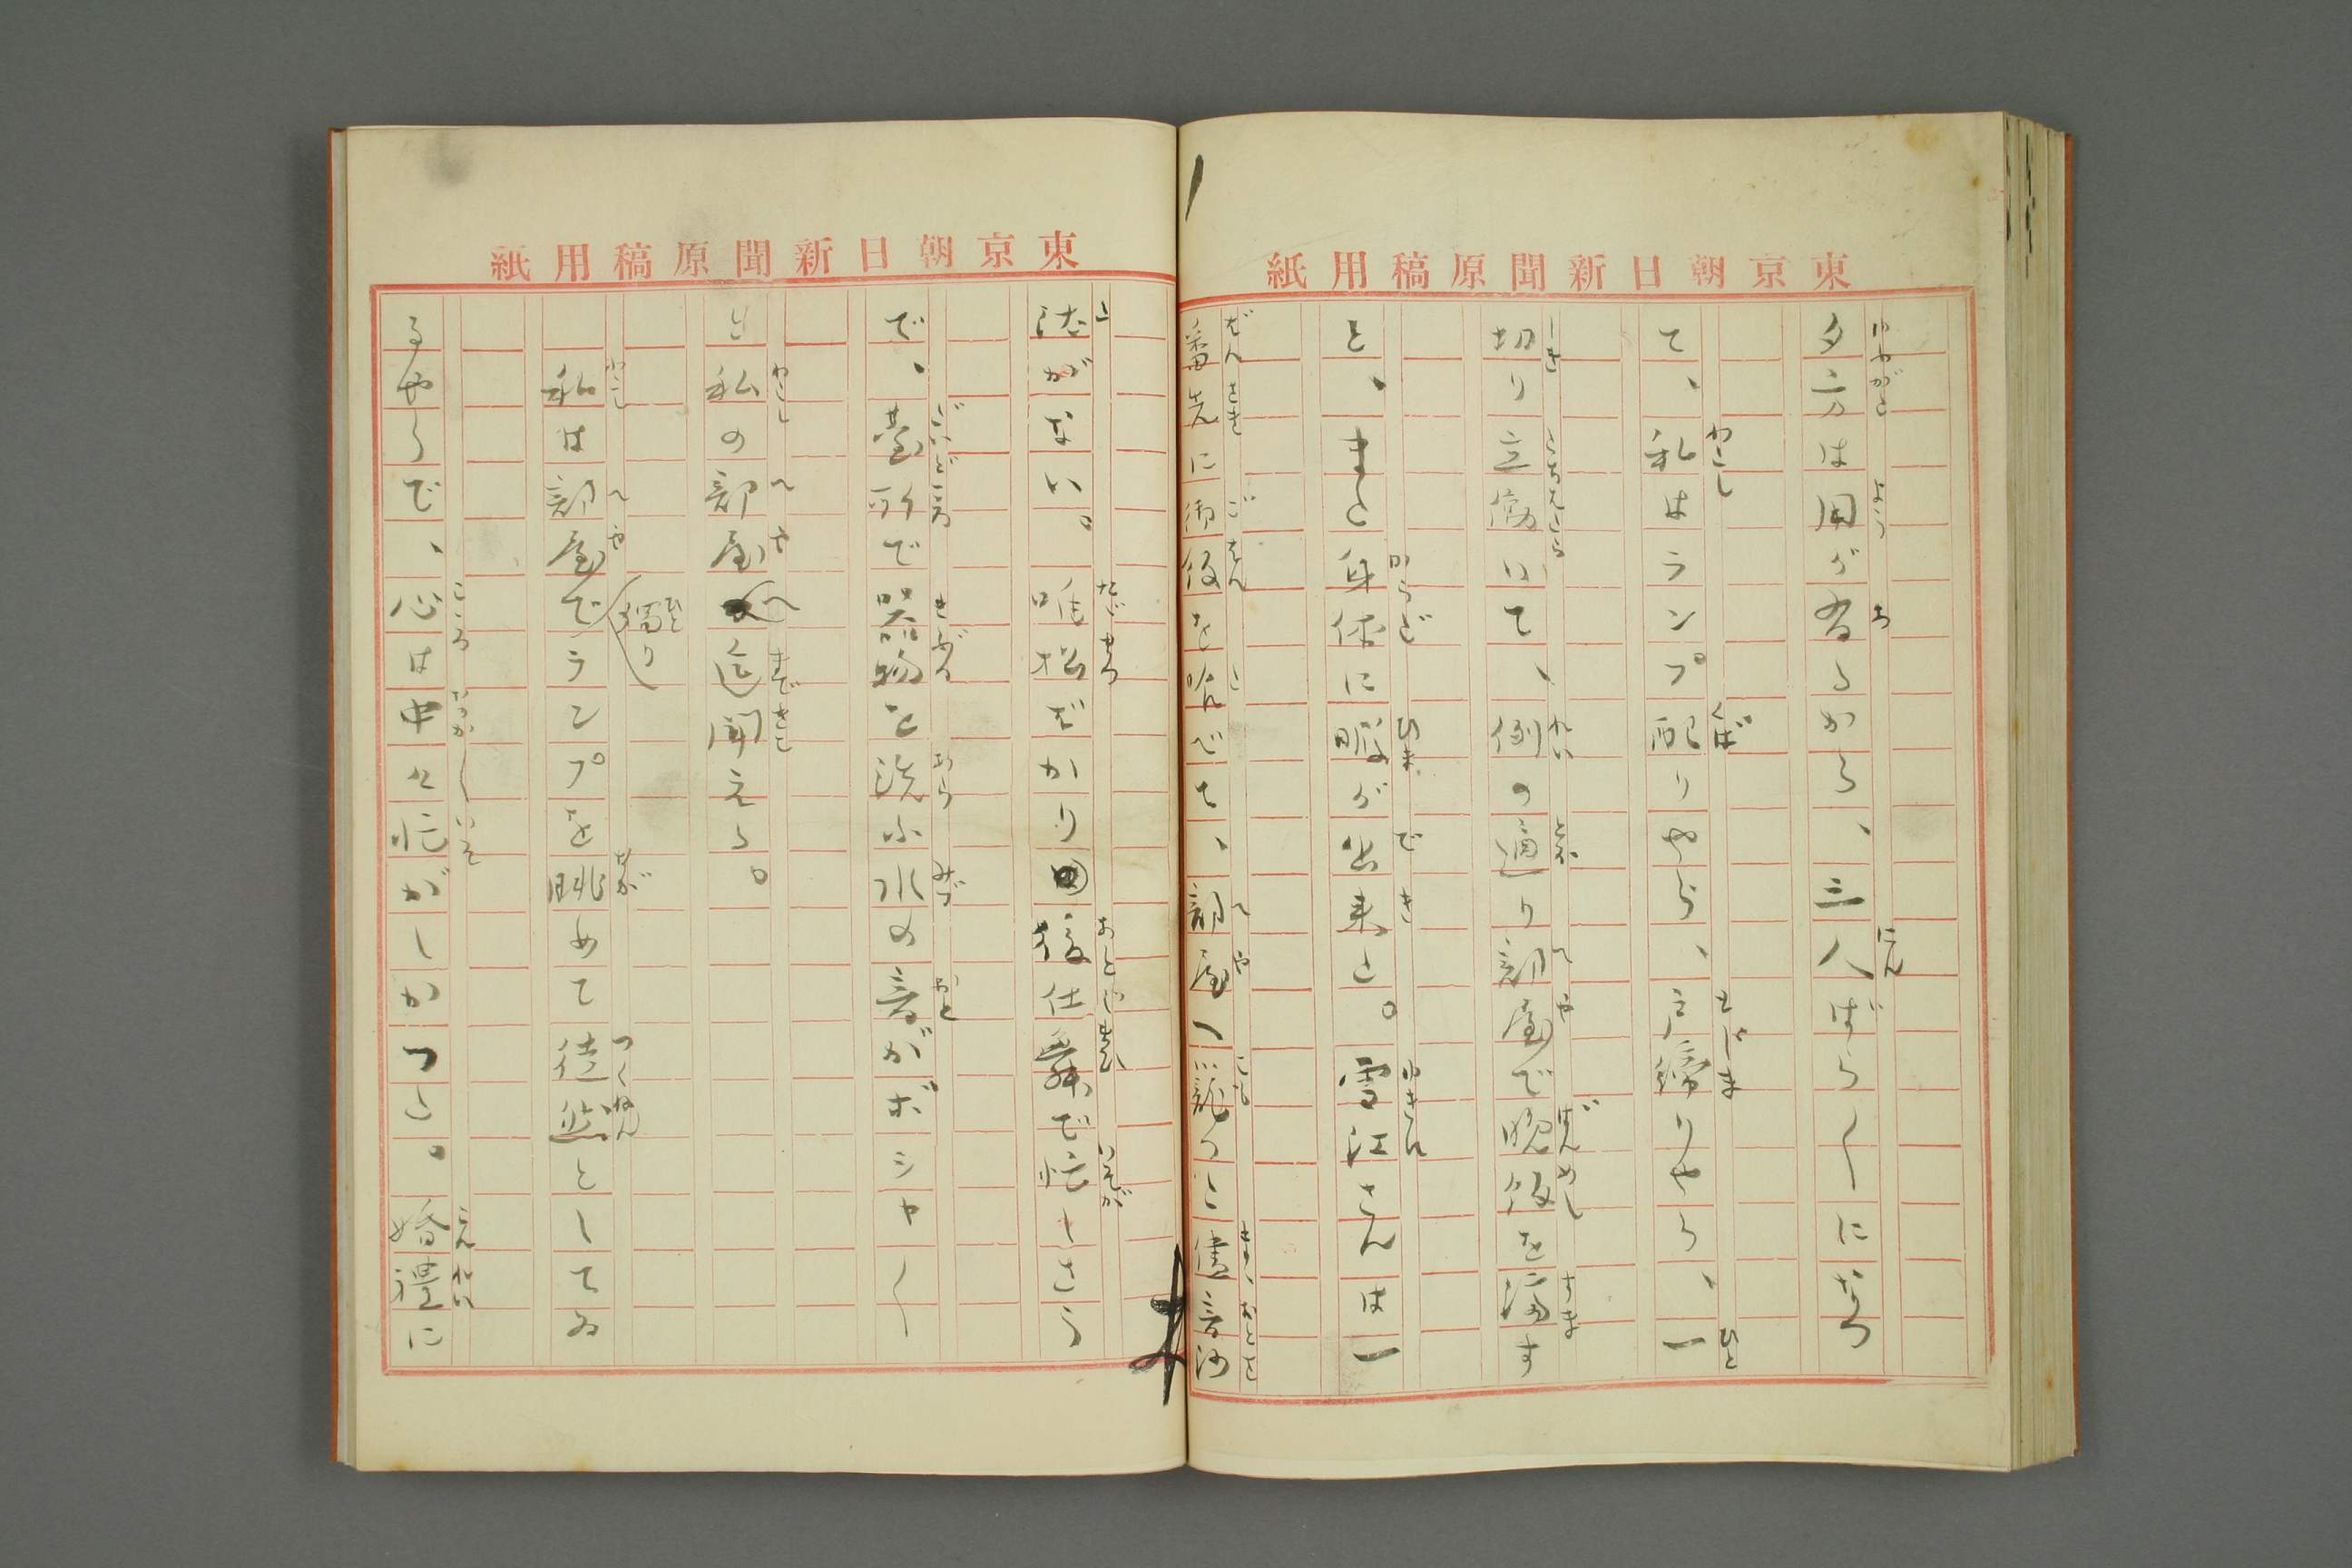 東京朝日新聞原稿用紙
夕方は用が有るから、三人ばら〳〵になつ
て、私はランプ配りやら、戸締りやら、一
切り立働いて、例の通り部屋で晩飯を済す
と、また身体に暇が出来た。雪江さんは一
番先に御飯を喰べて、部屋へ籠つた儘音沙
東京朝日新聞原稿用紙
汰がない。唯松ばかり後仕舞で忙しさう
で、臺所で器物を洗ふ水の音がボシヤ〳〵
と私の部屋へ迄聞える。
私は部屋で獨りランプを眺めて徒然としてゐ
るやうで、心は中々忙がしかつた。婚禮に